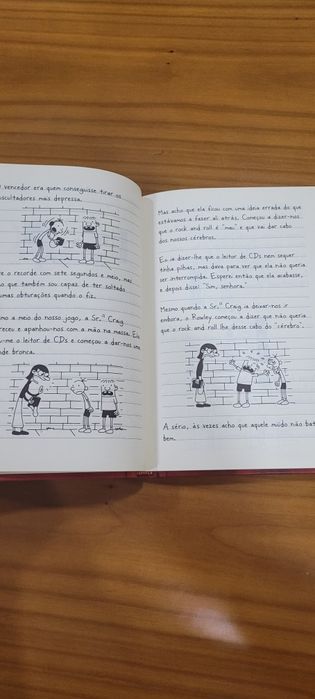 vencedor era quem conseguisse tirar os
scultadores mais depressa.
e o recorde com sete segundos e meio, mas
o que também sou capaz de ter soltado
umas obturações quando o fiz.
o a meio do nosso jogo, a Sr.ª Craig
receu e apanhou-nos com a mão na massa. Ela
u-me o leitor de CDs e começou a dar-nos uma
nde bronca.
Mas acho que ela ficou com uma ideia errada do que
estávamos a fazer ali atrás. Começou a dizer-nos
que o rock and roll é "mau" e que vai dar cabo
dos nossos cérebros.
Eu ia dizer-lhe que o leitor de CDs nem sequer
tinha pilhas, mas dava para ver que ela não queria
ser interrompida. Esperei então que ela acabasse,
e depois disse: "Sim, senhora."
Mesmo quando a Sr.ª Craig ia deixar-nos ir
embora, o Rowley começou a dizer que não queria
que o rock and roll lhe desse cabo do "cérebro".
A sério, às vezes acho que aquele miúdo não bate
bem.